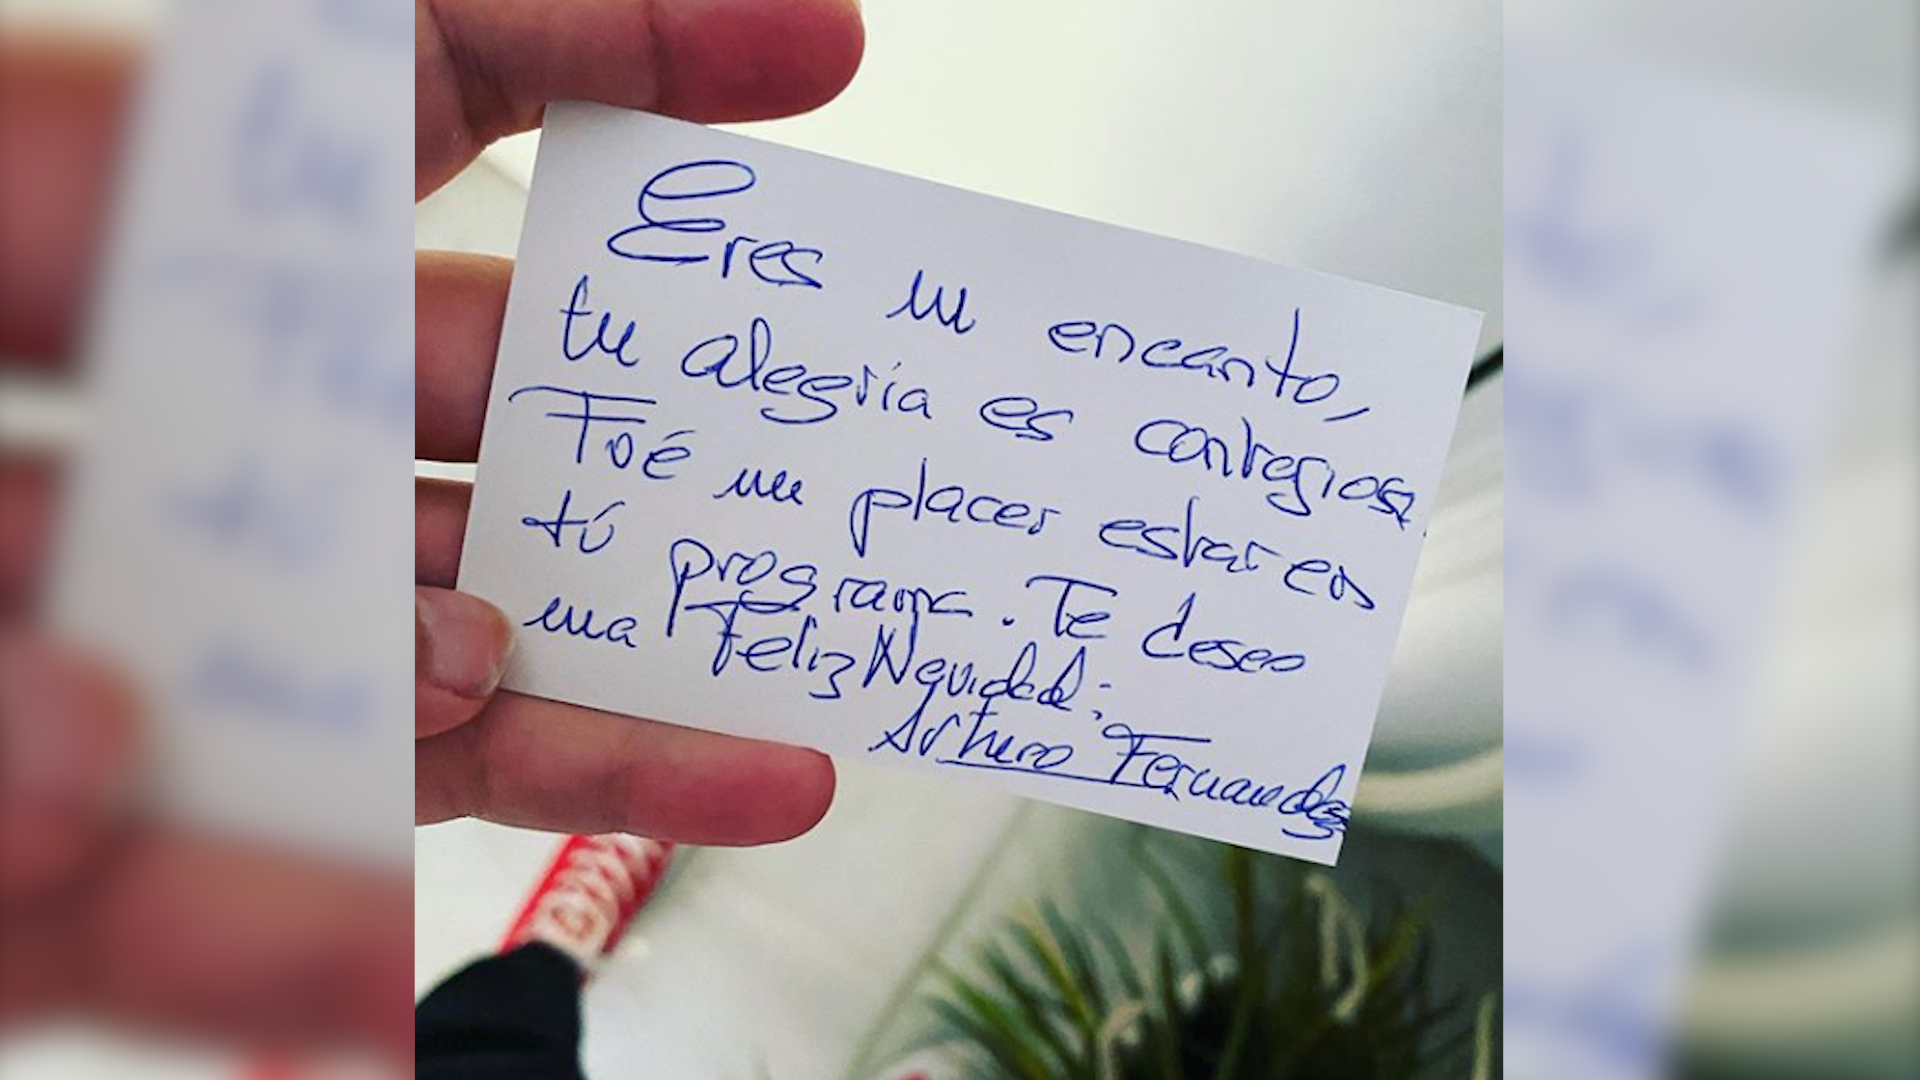 Eres un encanto,
tu alegría es contagiosa.
Fué un placer estar en
tú programa. Te deseo
una Feliz Navidad:
Arturo Fernandez